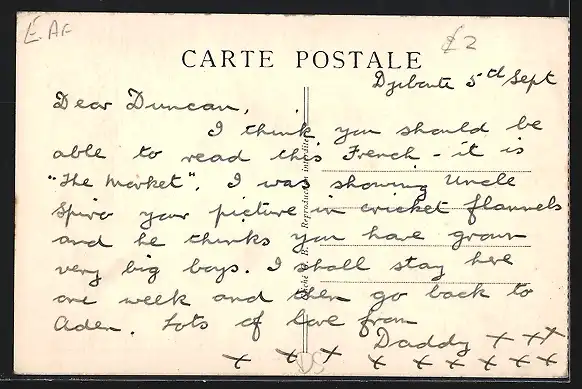 E. Af
£2
CARTE POSTALE
Djibouti 5th Sept
Dear Duncan,
I think you should be
able to read this French - it is
"The Market". I was showing Uncle
Spiro your picture in cricket flannels
and he thinks you have grown
very big boys. I shall stay here
one week and then go back to
Aden. Lots of love from
Daddy x x x x
x x x x x x x x x
Reproduction interdite
DS